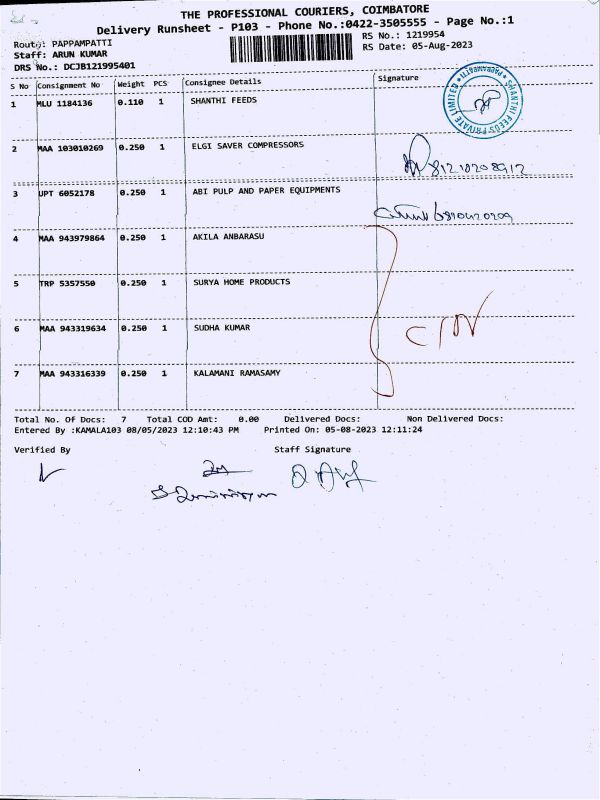 THE PROFESSIONAL COURIERS, COIMBATORE
Delivery Runsheet - P103 - Phone No.:0422-3505555 - Page No.:1
Route: PAPPAMPATTI
RS No.: 1219954
Staff: ARUN KUMAR
RS Date: 05-Aug-2023
DRS No.: DCJB121995401
S No Consignment No Weight PCS Consignee Details Signature
1 MLU 1184136 0.110 1 SHANTHI FEEDS
SHANTHI FEEDS PRIVATE LIMITED * PAPPAMPATTI *
2 MAA 103010269 0.250 1 ELGI SAVER COMPRESSORS
3 UPT 6052178 0.250 1 ABI PULP AND PAPER EQUIPMENTS
4 MAA 943979864 0.250 1 AKILA ANBARASU
5 TRP 5357550 0.250 1 SURYA HOME PRODUCTS
6 MAA 943319634 0.250 1 SUDHA KUMAR
7 MAA 943316339 0.250 1 KALAMANI RAMASAMY
Total No. Of Docs: 7 Total COD Amt: 0.00 Delivered Docs: Non Delivered Docs:
Entered By :KAMALA103 08/05/2023 12:10:43 PM Printed On: 05-08-2023 12:11:24
Verified By Staff Signature